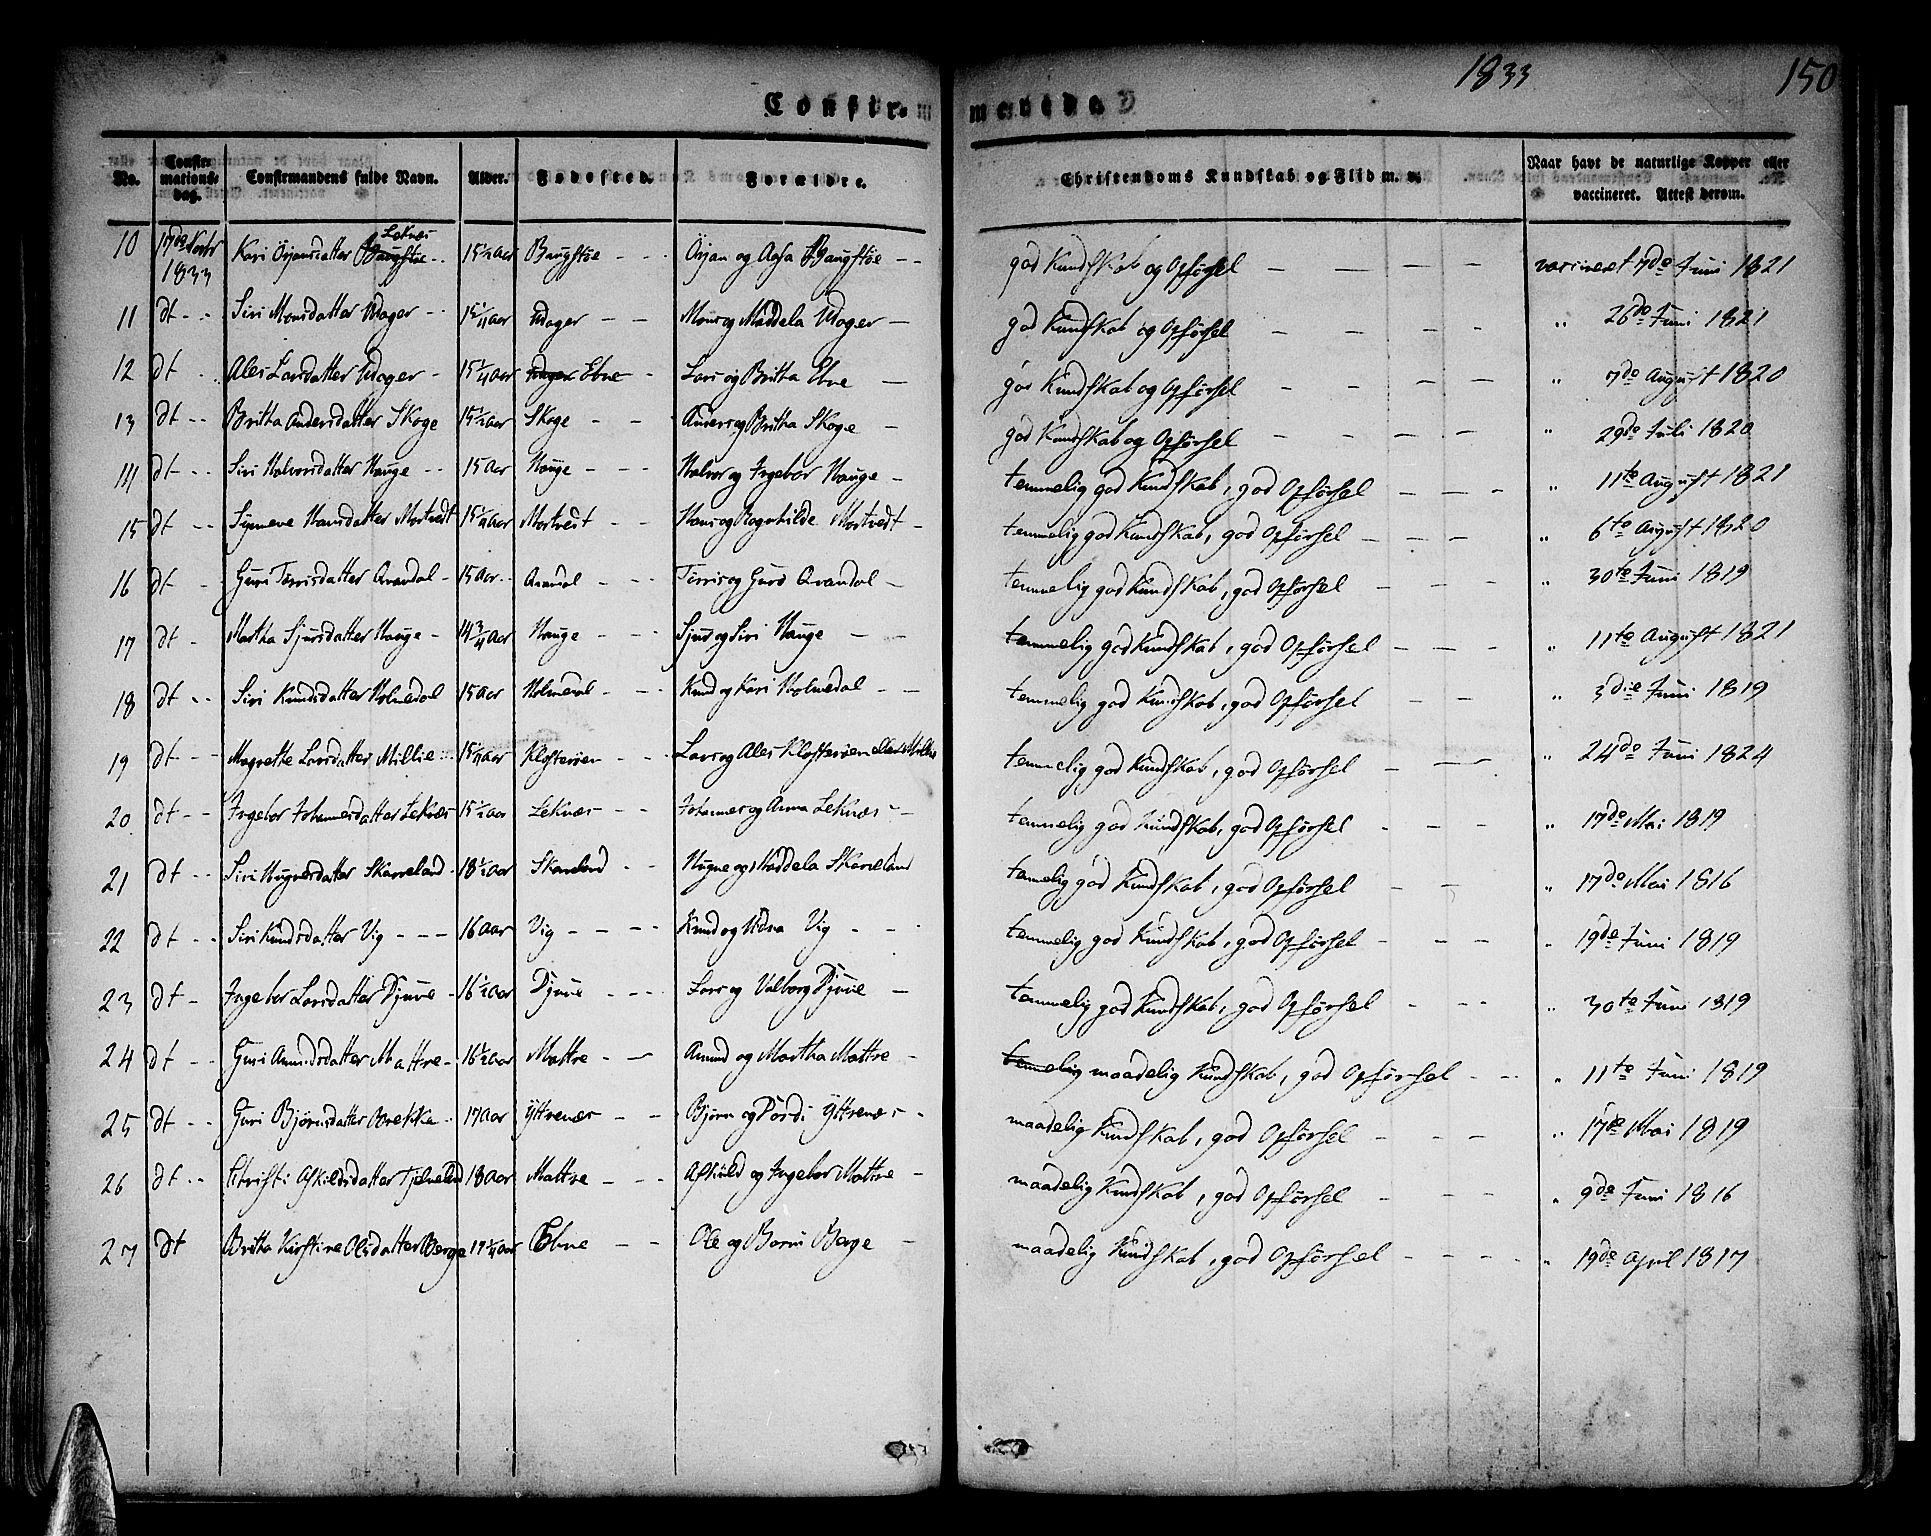 1833
150
Confir- merede
No. Confirmations-dag. Confirmandens fulde Navn. Alder. Fødested. Forældre. Christendoms Kundskab og Flid m. v. Naar havt de naturlige Kopper eller vaccineret. Attest derom.
Leknæs
10 17de Novbr 1833 Kari Örjansdatter Baugstøe 15 1/2 Aar Baugstøe Örjan og Aasa Baugstøe god Kundskab og Opførsel vacineret 7de Juni 1821
11 dt Siri Monsdatter Udager 15 1/4 Aar Udager Mons og Maddela Udager god Kundskab og Opførsel " 26de Juni 1821
12 dt Ales Larsdatter Udager 15 1/4 Aar Udager Ebne Lars og Britha Ebne god Kundskab og Opførsel " 7de August 1820
13 dt Britha Andersdatter Skoge 15 1/2 Aar Skoge Anders og Britha Skoge god Kundskab og Opførsel " 29de Juli 1820
14 dt Siri Halvorsdatter Hauge 15 Aar Hauge Halvor og Ingebor Hauge temmelig god Kundskab, god Opførsel " 11te August 1821
15 dt Synneve Hansdatter Mortvedt 15 1/4 Aar Mortvedt Hans og Ragnhilde Mortvedt temmelig god Kundskab, god Opførsel " 6te August 1820
16 dt Guri Tørrisdatter Qvandal 15 Aar Qvandal Tørris og Guro Qvandal temmelig god Kundskab, god Opførsel " 30te Juni 1819
17 dt Martha Sjursdatter Hauge 14 3/4 Aar Hauge Sjur og Siri Hauge temmelig god Kundskab, god Opførsel " 11te August 1821
18 dt Siri Knudsdatter Holmedal 15 Aar Holmedal Knud og Kari Holmedal temmelig god Kundskab, god Opførsel " 3die Juni 1819
19 dt Magrethe Larsdatter Millie 15 1/4 Aar Klosterøen Lars og Ales Klosterøen eller Millie temmelig god Kundskab, god Opførsel " 24de Juni 1824
20 dt Ingebor Johannesdatter Leknæs 15 1/2 Aar Leknæs Johannes og Anna Leknæs temmelig god Kundskab, god Opførsel " 17de Mai 1819
21 dt Siri Hognesdatter Skaneland 18 1/2 Aar Skaneland Hogne og Maddela Skaneland temmelig god Kundskab, god Opførsel " 17de Mai 1816
22 dt Siri Knudsdatter Vig 16 Aar Vig Knud og Vig temmelig god Kundskab, god Opførsel " 19de Juni 1819
23 dt Ingebor Larsdatter Djuve 16 1/2 Aar Djuve Lars og Valborg Djuve temmelig god Kundskab, god Opførsel " 30te Juni 1819
24 dt Guri Amundsdatter Mattre 16 1/2 Aar Mattre Amund og Martha Mattre temmelig maadelig Kundskab, god Opførsel " 11te Juni 1819
25 dt Guri Bjørnsdatter Brekke 17 Aar Yttrenæs Bjørn og Dordi Yttrenæs maadelig Kundskab, god Opførsel " 17de Mai 1819
26 dt Christi Askildsdatter Tjelmeland 18 Aar Mattre Askild og Ingebor Mattre maadelig Kundskab, god Opførsel " 9de Juni 1816
27 dt Britha Kirstine Olsdatter Berge 17 1/4 Aar Ebne Ole og Berge maadelig Kundskab, god Opførsel " 19de April 1817